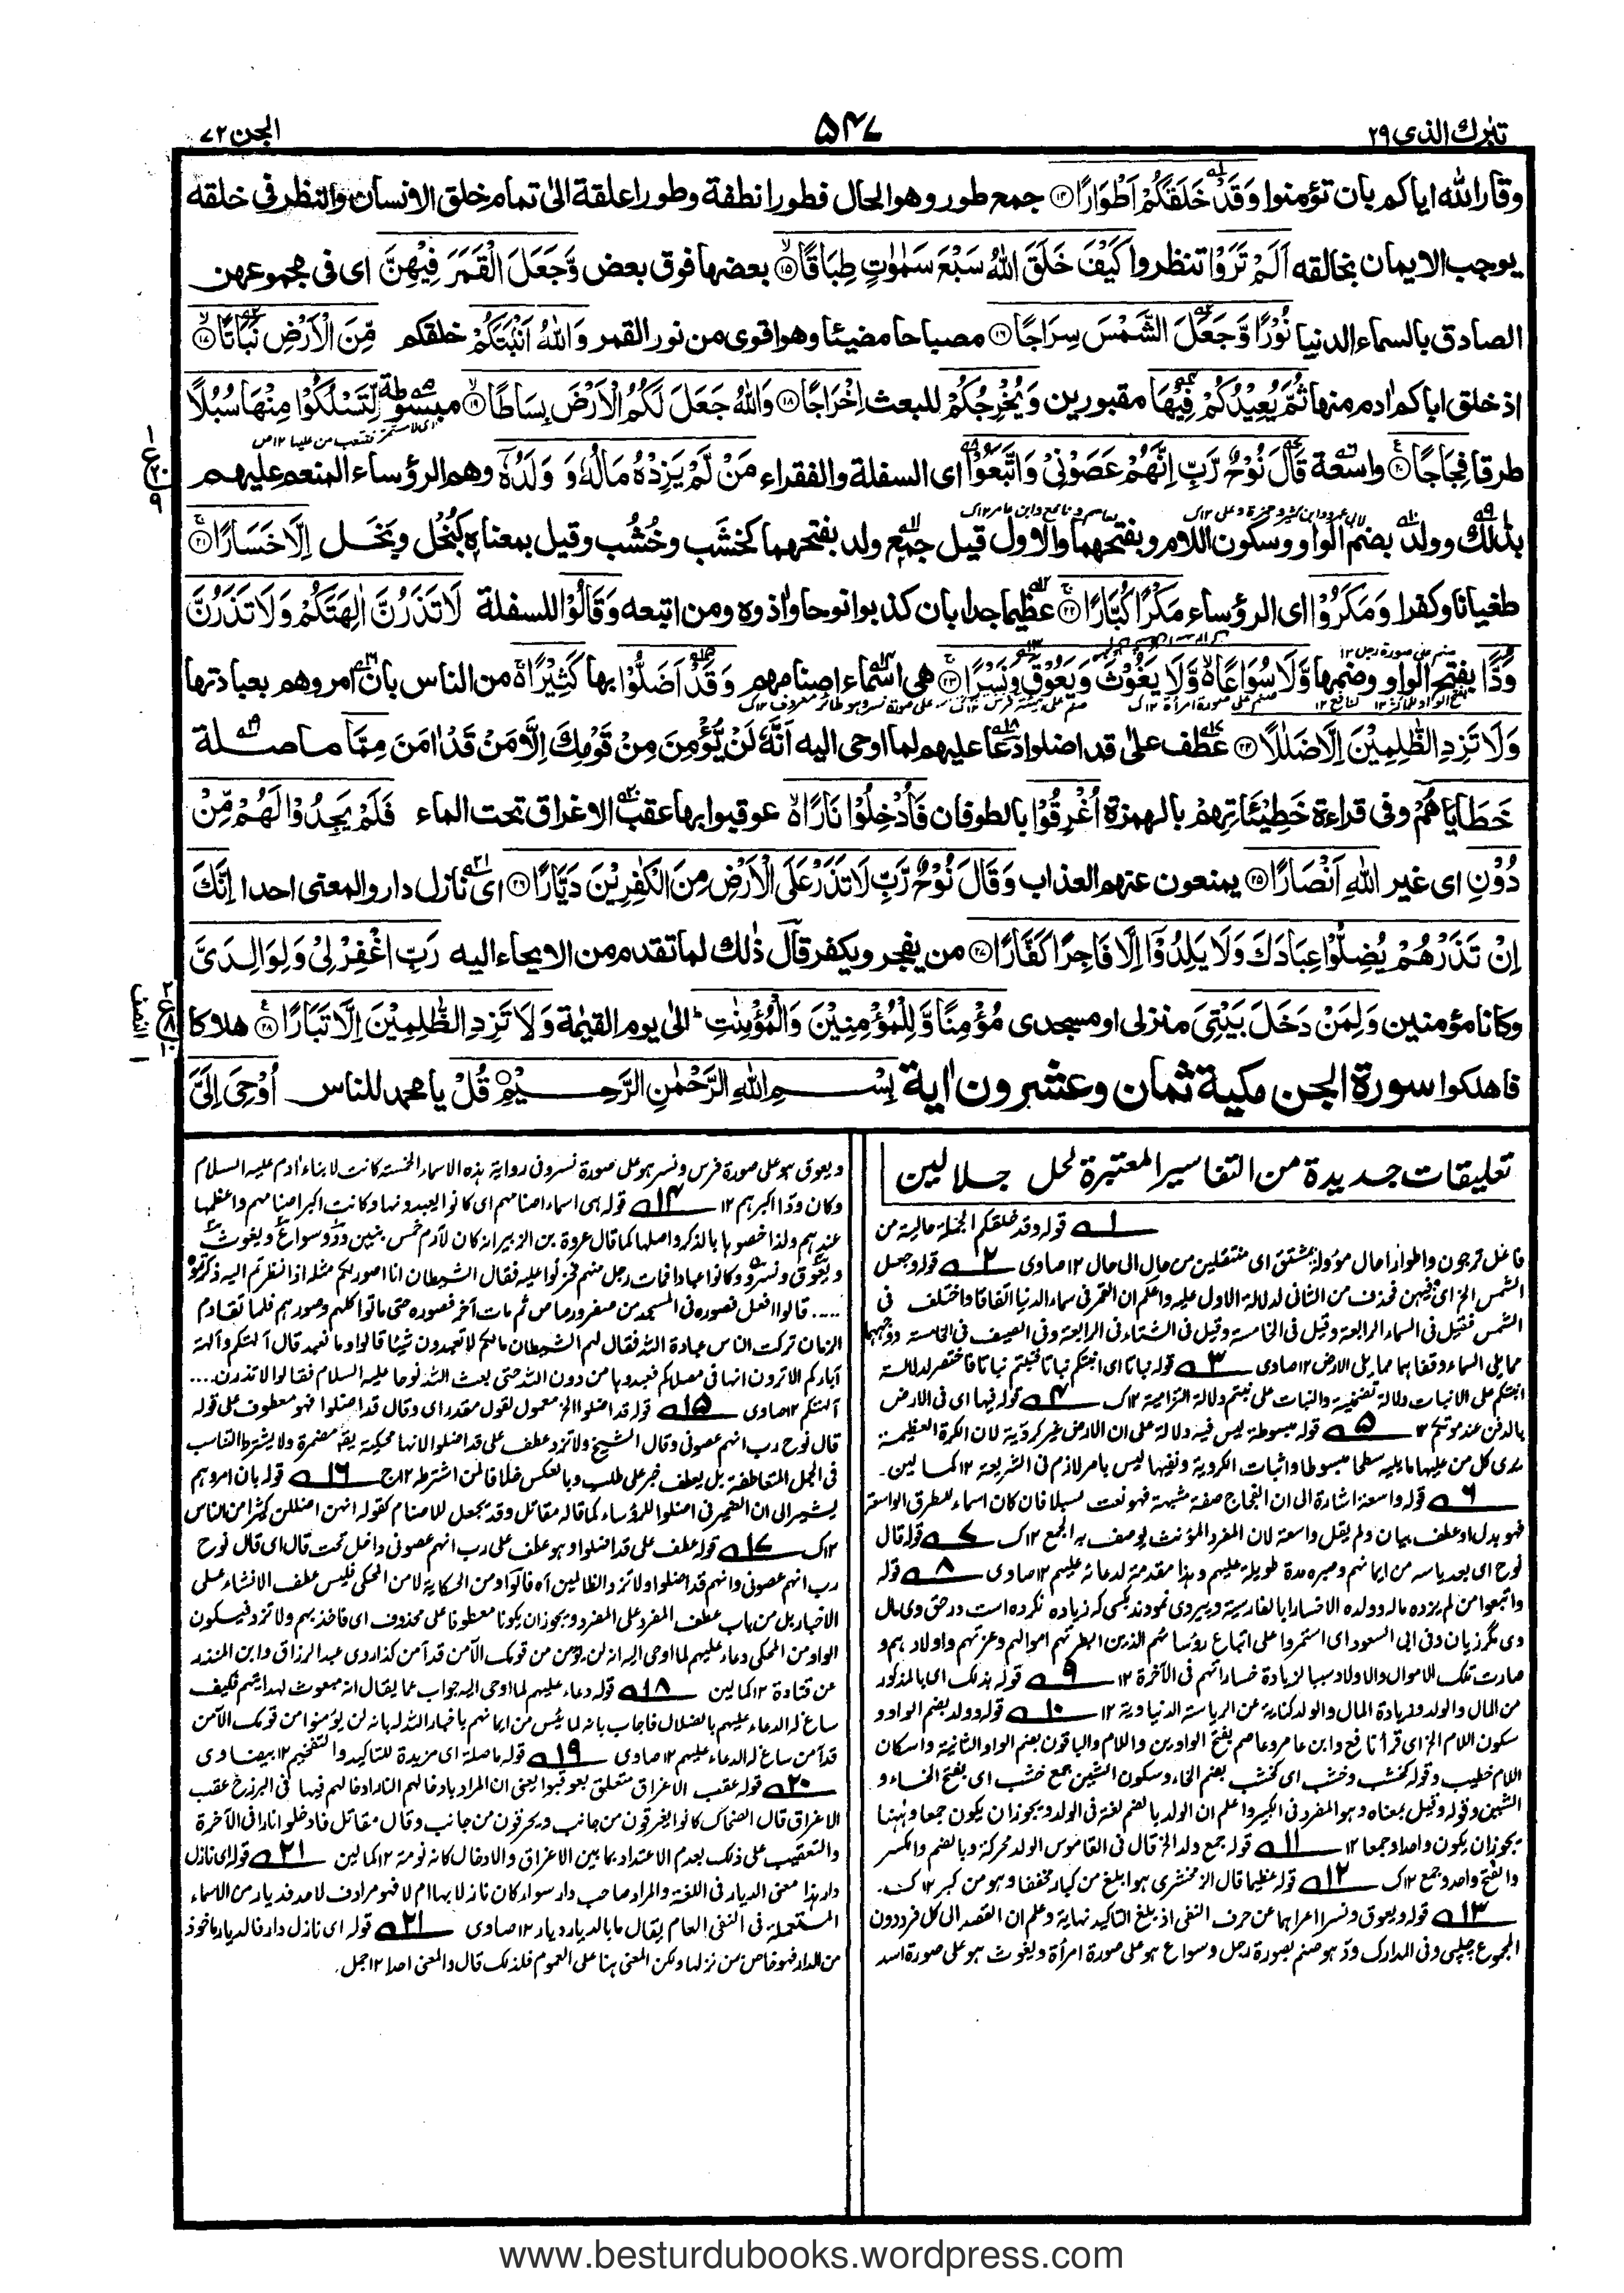 تبٰرك الذى ٢٩
٥٤٧
الجن ٧٢
وقار الله اياكم بان تؤمنوا وَقَدْ خَلَقَكُمْ اَطْوَارًا ⑭ جمع طور وهو الحال فطورا نطفة وطورا علقة الىٰ تمام خلق الانسان والنظر فى خلقه
يوجب الايمان بخالقه اَلَمْ تَرَوْا تنظروا كَيْفَ خَلَقَ اللهُ سَبْعَ سَمٰوٰتٍ طِبَاقًا ⑮ بعضها فوق بعض وَّجَعَلَ الْقَمَرَ فِيْهِنَّ اى فى مجموعهن
الصادق بالسماء الدنيا نُوْرًا وَّجَعَلَ الشَّمْسَ سِرَاجًا ⑯ مصباحا مضيئا وهو اقوى من نور القمر وَاللهُ اَنْبَتَكُمْ خلقكم مِّنَ الْاَرْضِ نَبَاتًا ⑰
اذ خلق اباكم اٰدم منها ثُمَّ يُعِيْدُكُمْ فِيْهَا مقبورين وَيُخْرِجُكُمْ للبعث اِخْرَاجًا ⑱ وَاللهُ جَعَلَ لَكُمُ الْاَرْضَ بِسَاطًا ⑲ مبسوطة لِّتَسْلُكُوْا مِنْهَا سُبُلًا
طرقا فِجَاجًا ⑳ واسعة قَالَ نُوْحٌ رَّبِّ اِنَّهُمْ عَصَوْنِىْ وَاتَّبَعُوْا اى السفلة والفقراء مَنْ لَّمْ يَزِدْهُ مَالُهٗ وَ وَلَدُهٗٓ وهم الرؤساء المنعم عليهم
بذٰلك وولد بضم الواو وسكون اللام وبفتحهما والاول قيل جمع ولد بفتحهما كخشَب وخُشْب وقيل بمعناه كبُخْل وبَخَل اِلَّا خَسَارًا ㉑
طغيانا وكفرا وَمَكَرُوْا اى الرؤساء مَكْرًا كُبَّارًا ㉒ عظيما جدا بان كذبوا نوحا واٰذوه ومن اتبعه وَقَالُوْا للسفلة لَا تَذَرُنَّ اٰلِهَتَكُمْ وَلَا تَذَرُنَّ
وَدًّا بفتح الواو وضمها وَّلَا سُوَاعًا وَّلَا يَغُوْثَ وَيَعُوْقَ وَنَسْرًا ㉓ هى اسماء اصنامهم وَقَدْ اَضَلُّوْا بها كَثِيْرًا من الناس بان امروهم بعبادتها
وَلَا تَزِدِ الظّٰلِمِيْنَ اِلَّا ضَلٰلًا ㉔ عطف علىٰ قد اضلوا دعا عليهم لما اوحى اليه اَنَّهٗ لَنْ يُّؤْمِنَ مِنْ قَوْمِكَ اِلَّا مَنْ قَدْ اٰمَنَ مِمَّا ما صلة
خَطَايَاهُمْ وفى قراءة خَطِيْئٰاتِهِمْ بالهمزة اُغْرِقُوْا بالطوفان فَاُدْخِلُوْا نَارًا عوقبوا بها عقب الاغراق تحت الماء فَلَمْ يَجِدُوْا لَهُمْ مِّنْ
دُوْنِ اى غير اللهِ اَنْصَارًا ㉕ يمنعون عنهم العذاب وَقَالَ نُوْحٌ رَّبِّ لَا تَذَرْ عَلَى الْاَرْضِ مِنَ الْكٰفِرِيْنَ دَيَّارًا ㉖ اى نازل دار والمعنى احدا اِنَّكَ
اِنْ تَذَرْهُمْ يُضِلُّوْا عِبَادَكَ وَلَا يَلِدُوْٓا اِلَّا فَاجِرًا كَفَّارًا ㉗ من يفجر ويكفر قال ذٰلك لما تقدم من الايحاء اليه رَبِّ اغْفِرْ لِىْ وَلِوَالِدَىَّ
وكانا مؤمنين وَلِمَنْ دَخَلَ بَيْتِىَ منزلى او مسجدى مُؤْمِنًا وَّلِلْمُؤْمِنِيْنَ وَالْمُؤْمِنٰتِ الىٰ يوم القيٰمة وَلَا تَزِدِ الظّٰلِمِيْنَ اِلَّا تَبَارًا ㉘ هلاكا
فاهلكوا سورة الجن مكية ثمان وعشرون اٰية بِسْمِ اللهِ الرَّحْمٰنِ الرَّحِيْمِ قُلْ يا محمد للناس اُوْحِىَ اِلَىَّ
تعليقات جديدة من التفاسير المعتبرة لحل جلالين
١ قوله وقد خلقكم الجملة حالية من
فاعل ترجون واطوارا حال مؤولة بمشتق اى منتقلين من حال الى حال ١٢ صاوى ٢ قوله وجعل
الشمس الخ اى فيهن فحذف من الثانى لدلالة الاول عليه واعلم ان القمر فى سماء الدنيا اتفاقا واختلف فى
الشمس فقيل فى السماء الرابعة وقيل فى الخامسة وقيل فى الشتاء فى الرابعة وفى الصيف فى الخامسة ووجهها
مما يلى السماء وقفاهما مما يلى الارض ١٢ صاوى ٣ قوله نباتا اى انبتكم نباتا فنبتم نباتا فاختصر لدلالة
انبتكم على الانبات دلالة تضمنية والنبات على نبتم دلالة التزامية ١٢ك ٤ قوله فيها اى فى الارض
بالدفن عند موتكم ١٢ ٥ قوله مبسوطة ليس فيه دلالة على ان الارض غير كروية لان الكرة العظيمة
يرى كل من عليها ما يليه سطحا مبسوطا واثبات الكروية ونفيها ليس بامر لازم فى الشريعة ١٢ كمالين۔
٦ قوله واسعة اشارة الى ان الفجاج صفة مشبهة فهو نعت لسبلا فان كان اسماء للطرق الواسعة
فهو بدل او عطف بيان ولم يقل واسعة لان المفرد المؤنث يوصف به الجمع ١٢ك ٧ قوله قال
نوح اى بعد ياسه من ايمانهم وصبره مدة طويلة عليهم وهذا مقدمة لدعائه عليهم ١٢ صاوى ٨ قوله
واتبعوا من لم يزده ماله وولده الا خسارا بالفارسية وپيروى نمودند بكسى كه زياده نكرده است در حق وى مال
وى مگر زيان وفى ابى السعود اى استمروا على اتباع رؤسائهم الذين ابطرتهم اموالهم وعزتهم واولادهم و
صارت تلك الاموال والاولاد سببا لزيادة خسارتهم فى الآخرة ١٢ ٩ قوله بذلك اى بالمذكور
من المال والولد وزيادة المال والولد كناية عن الرياسة الدنياوية ١٢ ١٠ قوله وولد بضم الواو و
سكون اللام الخ اى قرأ نافع وابن عامر وعاصم بفتح الواوين واللام والباقون بضم الواو الثانية واسكان
اللام خطيب وقوله كخشب وخشب اى كخشب بضم الخاء وسكون الشين جمع خشب اى بفتح الخاء و
الشين وقوله وقيل بمعناه وهو المفرد فى الكبير واعلم ان الولد بالضم لغة فى الولد ويجوز ان يكون جمعا وههنا
يجوز ان يكون واحدا وجمعا ١٢ ١١ قوله جمع ولد الخ قال فى القاموس الولد محركة وبالضم والكسر
والفتح واحد وجمع ١٢ك ١٢ قوله عظيما قال الزمخشرى هو ابلغ من كبار مخففا وهو من كبر ١٢ ك۔
١٣ قوله ويعوق ونسرا اعراهما عن حرف النفى اذ بلغ التاكيد نهاية وعلم ان القصد الى كل فرد دون
المجموع چلپى وفى المدارك ود هو صنم بصورة رجل وسواع هو على صورة امرأة ويغوث هو على صورة اسد
ويعوق هو على صورة فرس ونسر هو على صورة نسر وفى رواية هذه الاسماء الخمسة كانت لابناء اٰدم عليه السلام
وكان ودا اكبرهم ١٢ ١٤ قوله هى اسماء اصنامهم اى كانوا يعبدونها وكانت اكبر اصنامهم واعظمها
عندهم ولذا خصوها بالذكر واصلها كما قال عروة بن الزبير انه كان لآدم خمس بنين ود وسواع ويغوث
ويعوق ونسر وكانوا عبادا فمات رجل منهم فحزنوا عليه فقال الشيطان انا اصور لكم مثله اذا نظرتم اليه ذكرتموه
.... قالوا افعل فصوره فى المسجد من صفر ورصاص ثم مات آخر فصوره حتى ماتوا كلهم وصورهم فلما تقادم
الزمان تركت الناس عبادة الله فقال لهم الشيطان مالكم لا تعبدون شيئا قالوا وما نعبد قال آلهتكم وآلهة
آبائكم الا ترون انها فى مصلاكم فعبدوها من دون الله حتى بعث الله نوحا عليه السلام فقالوا لا تذرن....
آلهتكم ١٢ صاوى ١٥ قوله قد اضلوا الخ معمول لقول مقدر اى وقال قد اضلوا فهو معطوف على قوله
قال نوح رب انهم عصونى وقال الشيخ ولا تزد عطف على قد اضلوا لانها محكية بقال مضمرة ولا يشترط التناسب
فى الجمل المتعاطفة بل يعطف خبر على طلب وبالعكس خلافا لمن اشترطه ١٢ج ١٦ قوله بان امروهم
يشير الى ان الضمير فى اضلوا للرؤساء كما قاله مقاتل وقد يجعل للاصنام كقوله انهن اضللن كثيرا من الناس
١٢ك ١٧ قوله عطف على قد اضلوا وهو عطف على رب انهم عصونى داخل تحت قال اى قال نوح
رب انهم عصونى وانهم قد اضلوا ولا تزد الظالمين آه قالوا ومن الحكاية لا من المحكى فليس عطف الانشاء على
الاخبار بل من باب عطف المفرد على المفرد ويجوز ان يكونا معطوفا على محذوف اى فاخذهم ولا تزد فيسكون
الواو من المحكى دعاء عليهم لما اوحى اليه انه لن يؤمن من قومك الا من قد آمن كذا روى عبد الرزاق وابن المنذر
عن قتادة ١٢ كمالين ١٨ قوله دعاء عليهم لما اوحى اليه جواب عما يقال انه مبعوث لهدايتهم فكيف
ساغ له الدعاء عليهم بالضلال فاجاب بانه لما يئس من ايمانهم باخبار الله له بانه لن يؤمنوا من قومك الا من
قد آمن ساغ له الدعاء عليهم ١٢ صاوى ١٩ قوله ما صلة اى مزيدة للتاكيد والتفخيم ١٢ بيضاوى
٢٠ قوله عقب الاغراق متعلق بعوقبوا يعنى ان المراد بادخالهم النار ادخالهم فيها فى البرزخ عقب
الاغراق قال الضحاك كانوا يغرقون من جانب ويحرقون من جانب وقال مقاتل فادخلوا نارا فى الآخرة
والتعقيب على ذلك بعدم الاعتداد بما بين الاغراق والادخال كانه نومة ١٢ كمالين ٢١ قوله اى نازل
دار هذا معنى الديار فى اللغة والمراد صاحب دار سواء كان نازلا بها ام لا فهو مرادف لاحد فديار من الاسماء
المستعملة فى النفى العام يقال ما بالدار ديار ١٢ صاوى ٢١ قوله اى نازل دار فالديار ماخوذ
من الدار فهو خاص بمن نزلها ولكن المعنى هنا على العموم فلذلك قال والمعنى احدا ١٢ جمل.
www.besturdubooks.wordpress.com